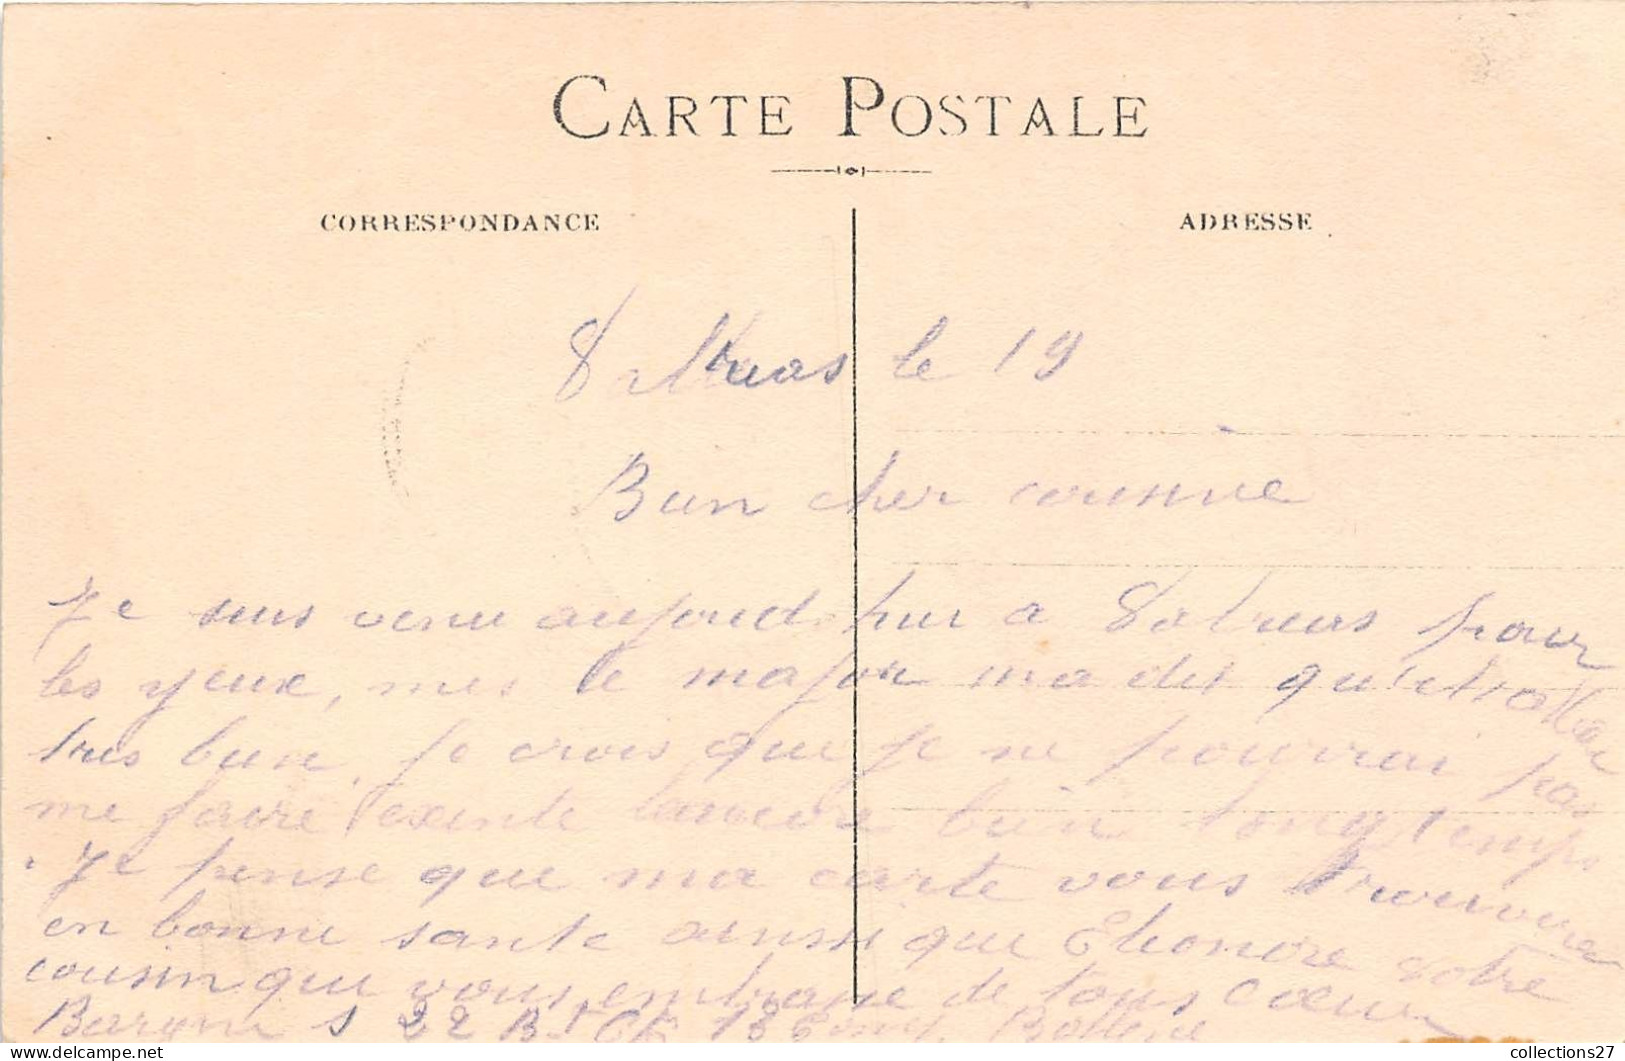 CARTE POSTALE
CORRESPONDANCE
ADRESSE
le 19
Bien cher cousine
Je suis venu aujourd hui a pour
les yeux, mes le major ma dit qu'
tres bien, je crois que je ne pourrai pas
me faire exente encore bien longtemps
Je pense que ma carte vous trouvera
en bonne sante ainsi que Elionore votre
cousin qui vous embrasse de tous coeur
22
collections27